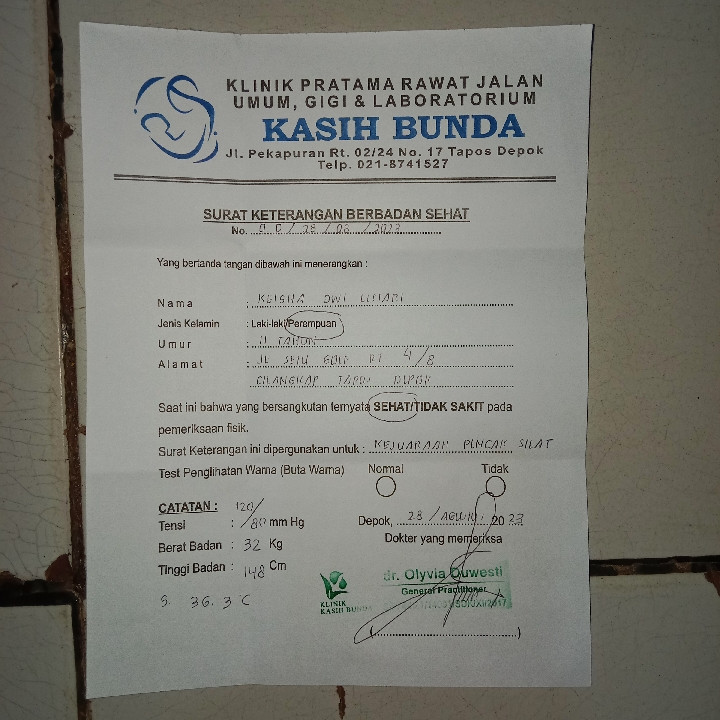 KLINIK PRATAMA RAWAT JALAN
UMUM, GIGI & LABORATORIUM
KASIH BUNDA
Jl. Pekapuran Rt. 02/24 No. 17 Tapos Depok
Telp. 021-8741527
SURAT KETERANGAN BERBADAN SEHAT
No. / 28 / 08 / 2023
Yang bertanda tangan dibawah ini menerangkan :
Nama : KEISHA DWI
Jenis Kelamin : Laki-laki/Perempuan
Umur : 11 TAHUN
Alamat : JL GOLF RT 4/8
CILANGKAP TAPOS DEPOK
Saat ini bahwa yang bersangkutan ternyata SEHAT/TIDAK SAKIT pada
pemeriksaan fisik.
Surat Keterangan ini dipergunakan untuk : KEJUARAAN PENCAK SILAT
Test Penglihatan Warna (Buta Warna) Normal Tidak
CATATAN :
Tensi : 120/80 mm Hg
Berat Badan : 32 Kg
Tinggi Badan : 148 Cm
S. 36.3°C
Depok, 28 / AGUSTUS 2023
Dokter yang memeriksa
KLINIK
KASIH BUNDA
dr. Olyvia Duwesti
General Practitioner
(....................................)